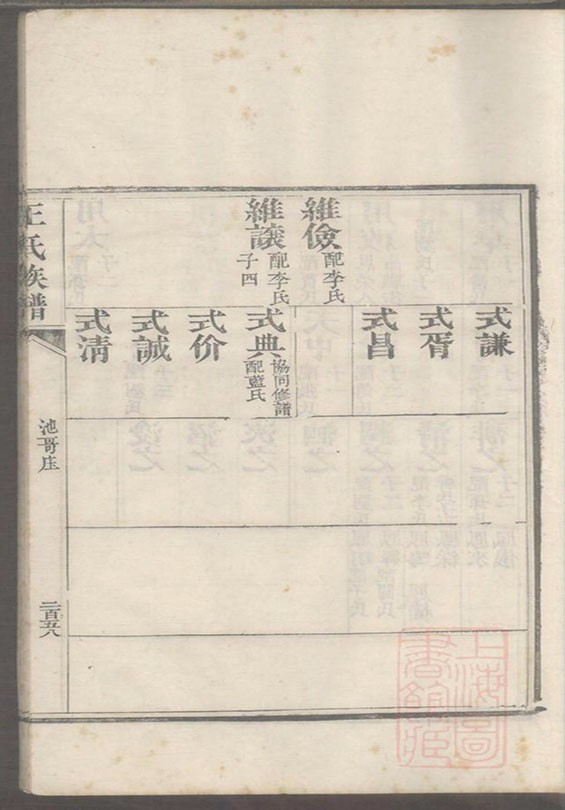 維儉 配李氏
維讓 配李氏 子四
式謙
式胥
式昌
式典 協同修譜 配藍氏
式价
式誠
式淸
王氏族譜
池哥庄
二百五八
上海圖書館藏